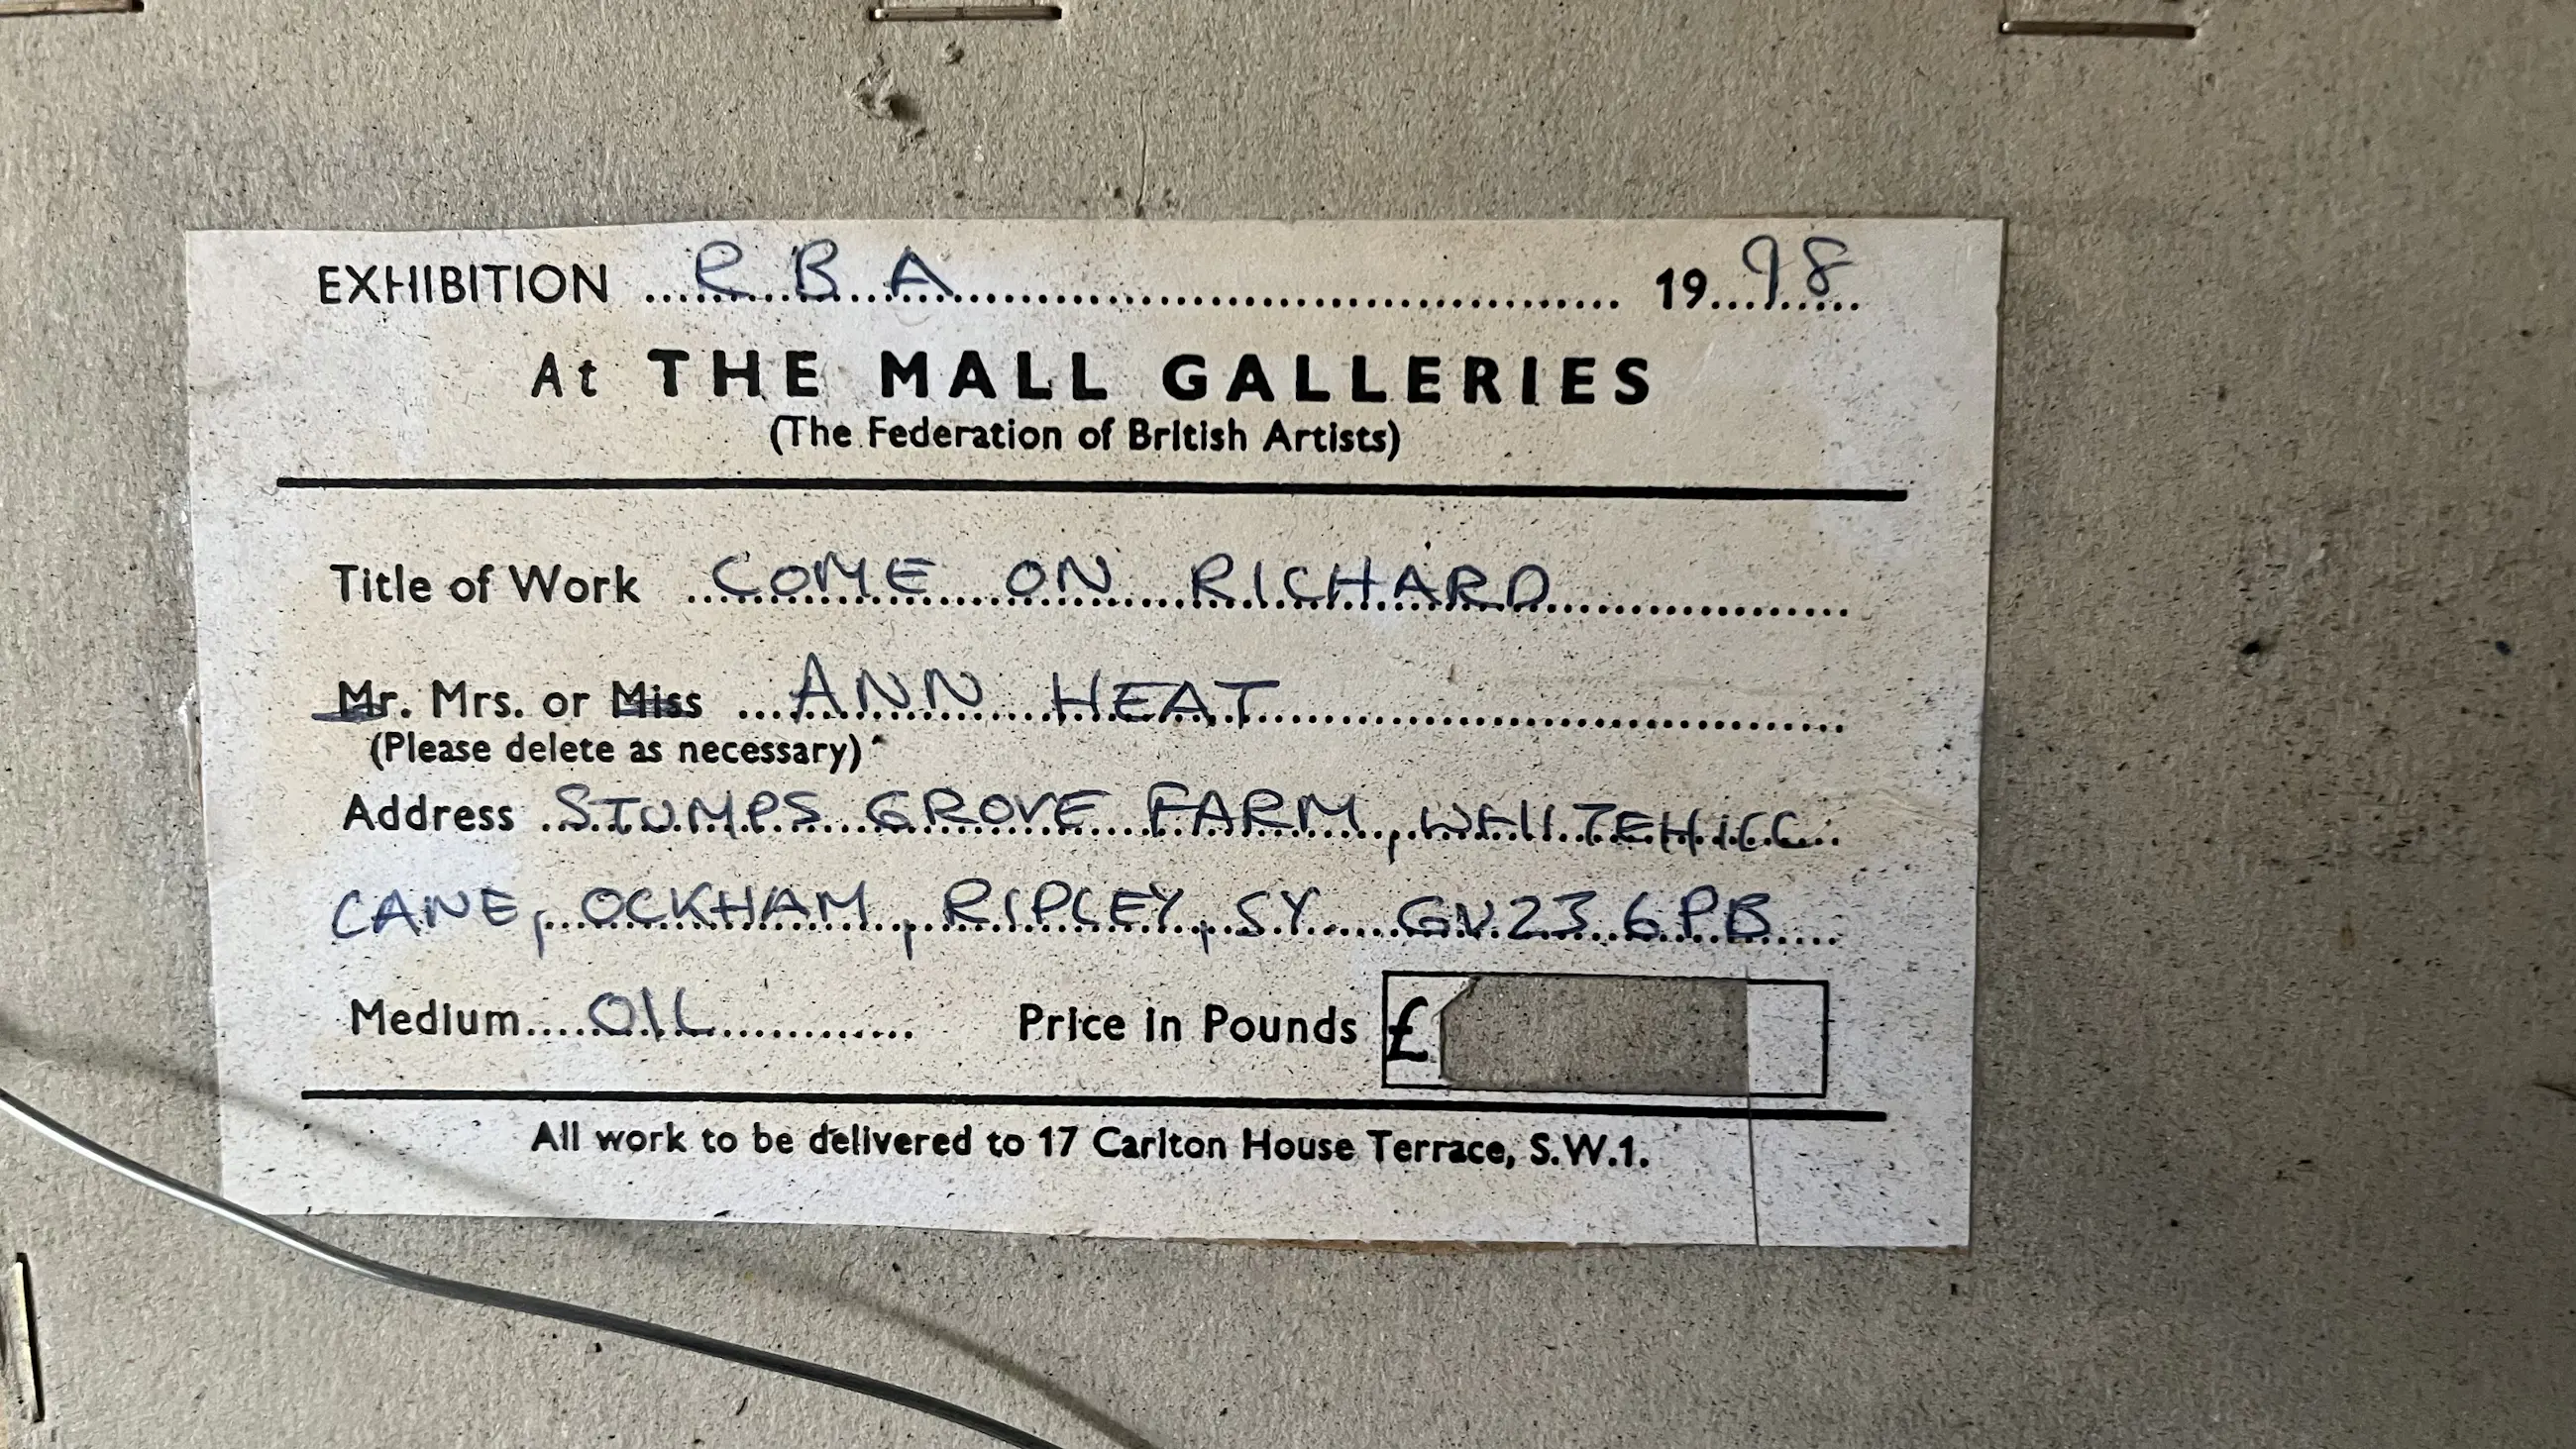 EXHIBITION RBA 1998
At THE MALL GALLERIES
(The Federation of British Artists)
Title of Work COME ON RICHARD
Mr. Mrs. or Miss ANN HEAT
(Please delete as necessary)
Address STUMPS GROVE FARM, WHITEHILL
LANE, OCKHAM, RIPLEY, SY GU23 6PB
Medium OIL Price in Pounds £
All work to be delivered to 17 Carlton House Terrace, S.W.1.